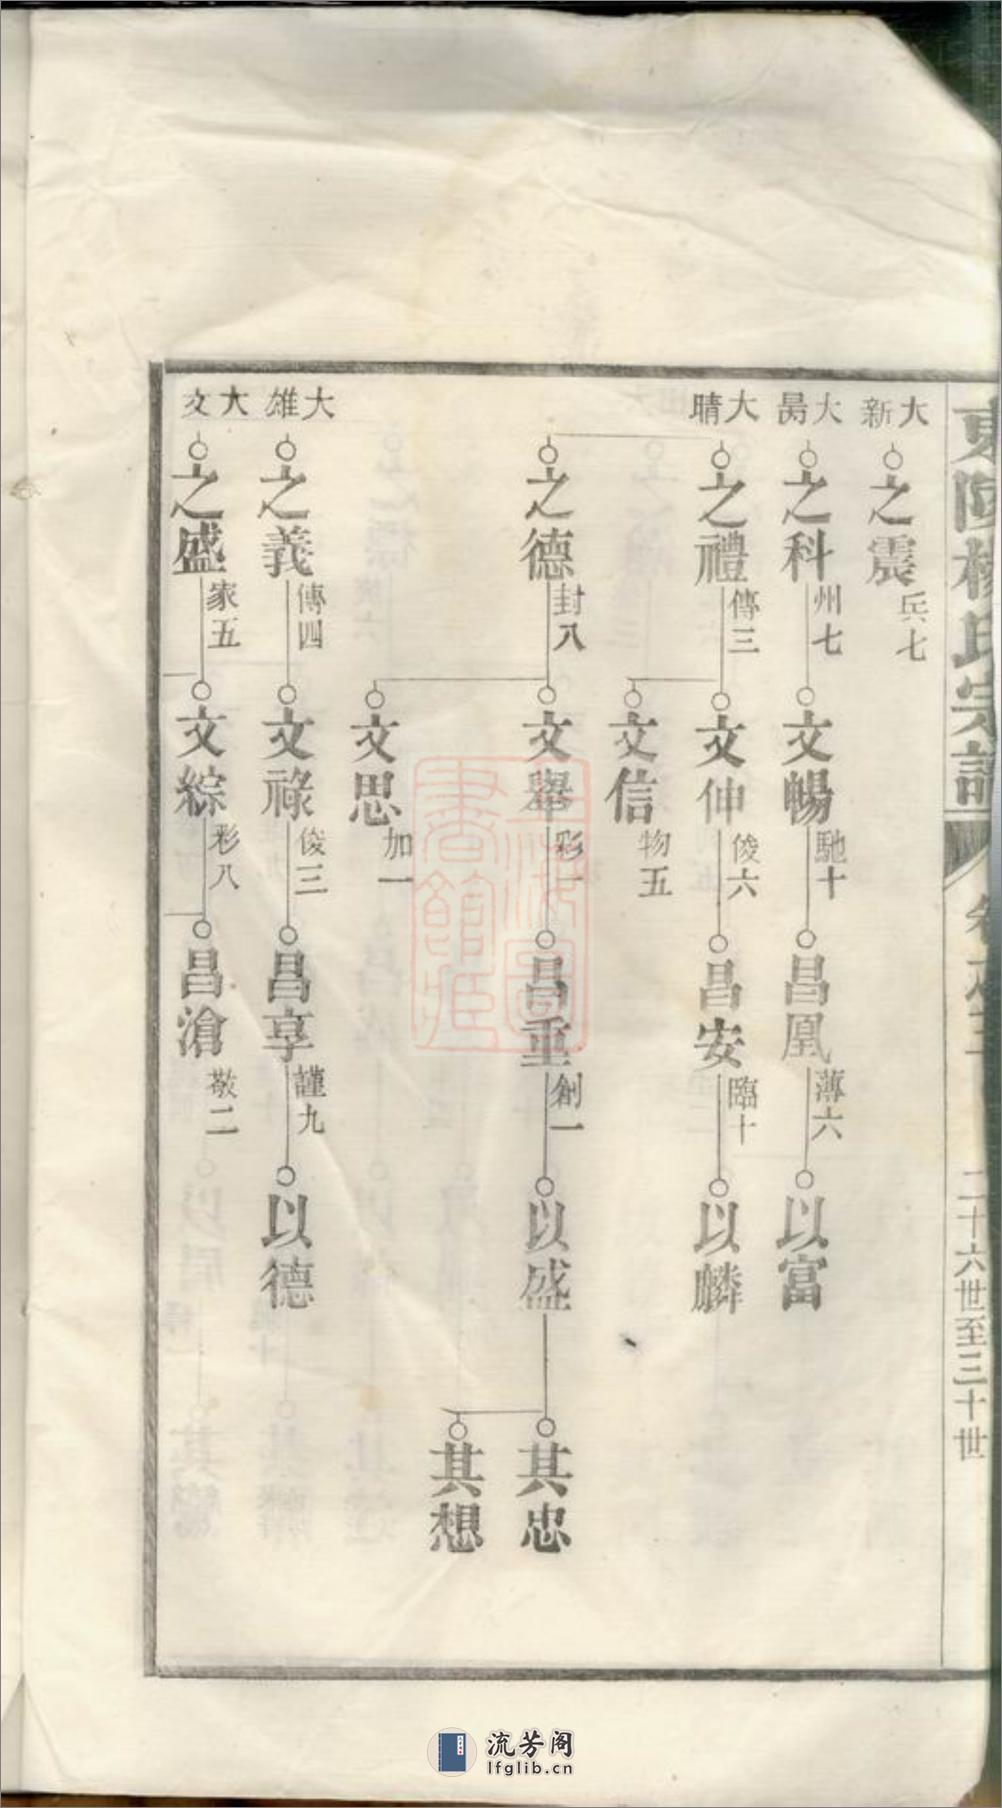 東陽楊氏宗譜
二十六世至三十世
大新
之震 兵七
大昺
之科 州七
文暢 馳十
昌凰 薄六
以富
大晴
之禮 傳三
文仲 俊六
昌安 臨十
以麟
文信 物五
之德 封八
文舉 彩一
昌重 創一
以盛
其忠
其想
文思 加一
大雄
之義 傳四
文祿 俊三
昌享 謹九
以德
大文
之盛 家五
文綜 彩八
昌滄 敬二
上海圖書館藏
流芳阁
lfglib.cn